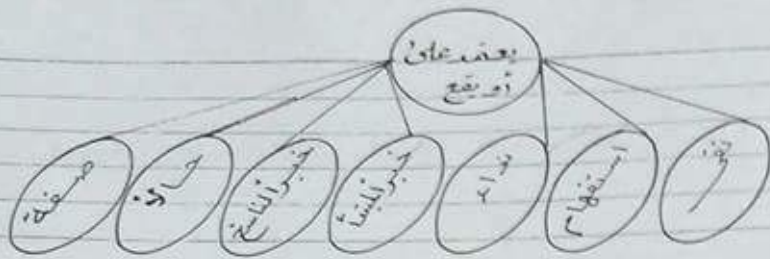 يعتمد على
أو يقع
نفي
استفهام
نداء
خبر المبتدأ
خبر الناسخ
حالا
صفة